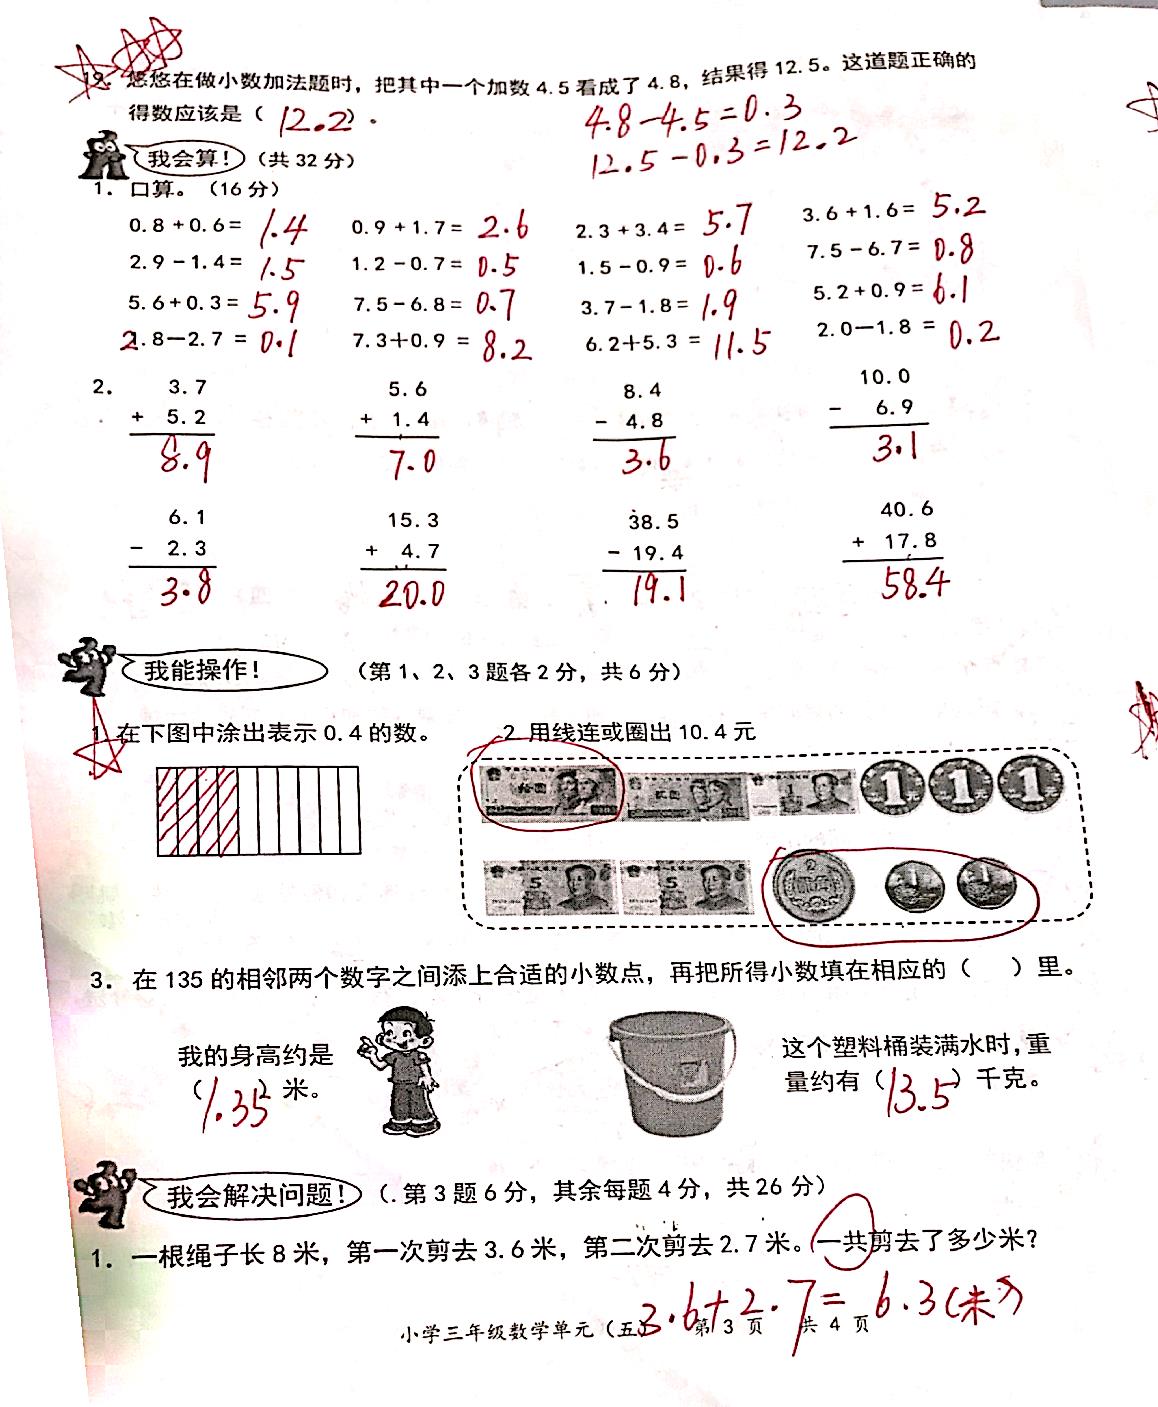 12. 悠悠在做小数加法题时，把其中一个加数4.5看成了4.8，结果得12.5。这道题正确的
得数应该是（ 12.2 ）.
4.8-4.5=0.3
12.5-0.3=12.2
我会算!（共32分）
1. 口算。（16分）
0.8+0.6= 1.4 0.9+1.7= 2.6 2.3+3.4= 5.7 3.6+1.6= 5.2
2.9-1.4= 1.5 1.2-0.7= 0.5 1.5-0.9= 0.6 7.5-6.7= 0.8
5.6+0.3= 5.9 7.5-6.8= 0.7 3.7-1.8= 1.9 5.2+0.9= 6.1
2.8-2.7 = 0.1 7.3+0.9 = 8.2 6.2+5.3 = 11.5 2.0-1.8 = 0.2
2. 3.7 5.6 8.4 10.0
+ 5.2 + 1.4 - 4.8 - 6.9
8.9 7.0 3.6 3.1
6.1 15.3 38.5 40.6
- 2.3 + 4.7 - 19.4 + 17.8
3.8 20.0 19.1 58.4
我能操作!（第1、2、3题各2分，共6分）
1 在下图中涂出表示0.4的数。 2 用线连或圈出10.4元
拾圆 贰圆 1 1 1 1
5 5
3. 在135的相邻两个数字之间添上合适的小数点，再把所得小数填在相应的（ ）里。
我的身高约是
（1.35）米。
这个塑料桶装满水时，重
量约有（13.5）千克。
我会解决问题!（.第3题6分，其余每题4分，共26分）
1. 一根绳子长8米，第一次剪去3.6米，第二次剪去2.7米。一共剪去了多少米？
3.6+2.7=6.3(米)
小学三年级数学单元（五） 第 3 页 共 4 页